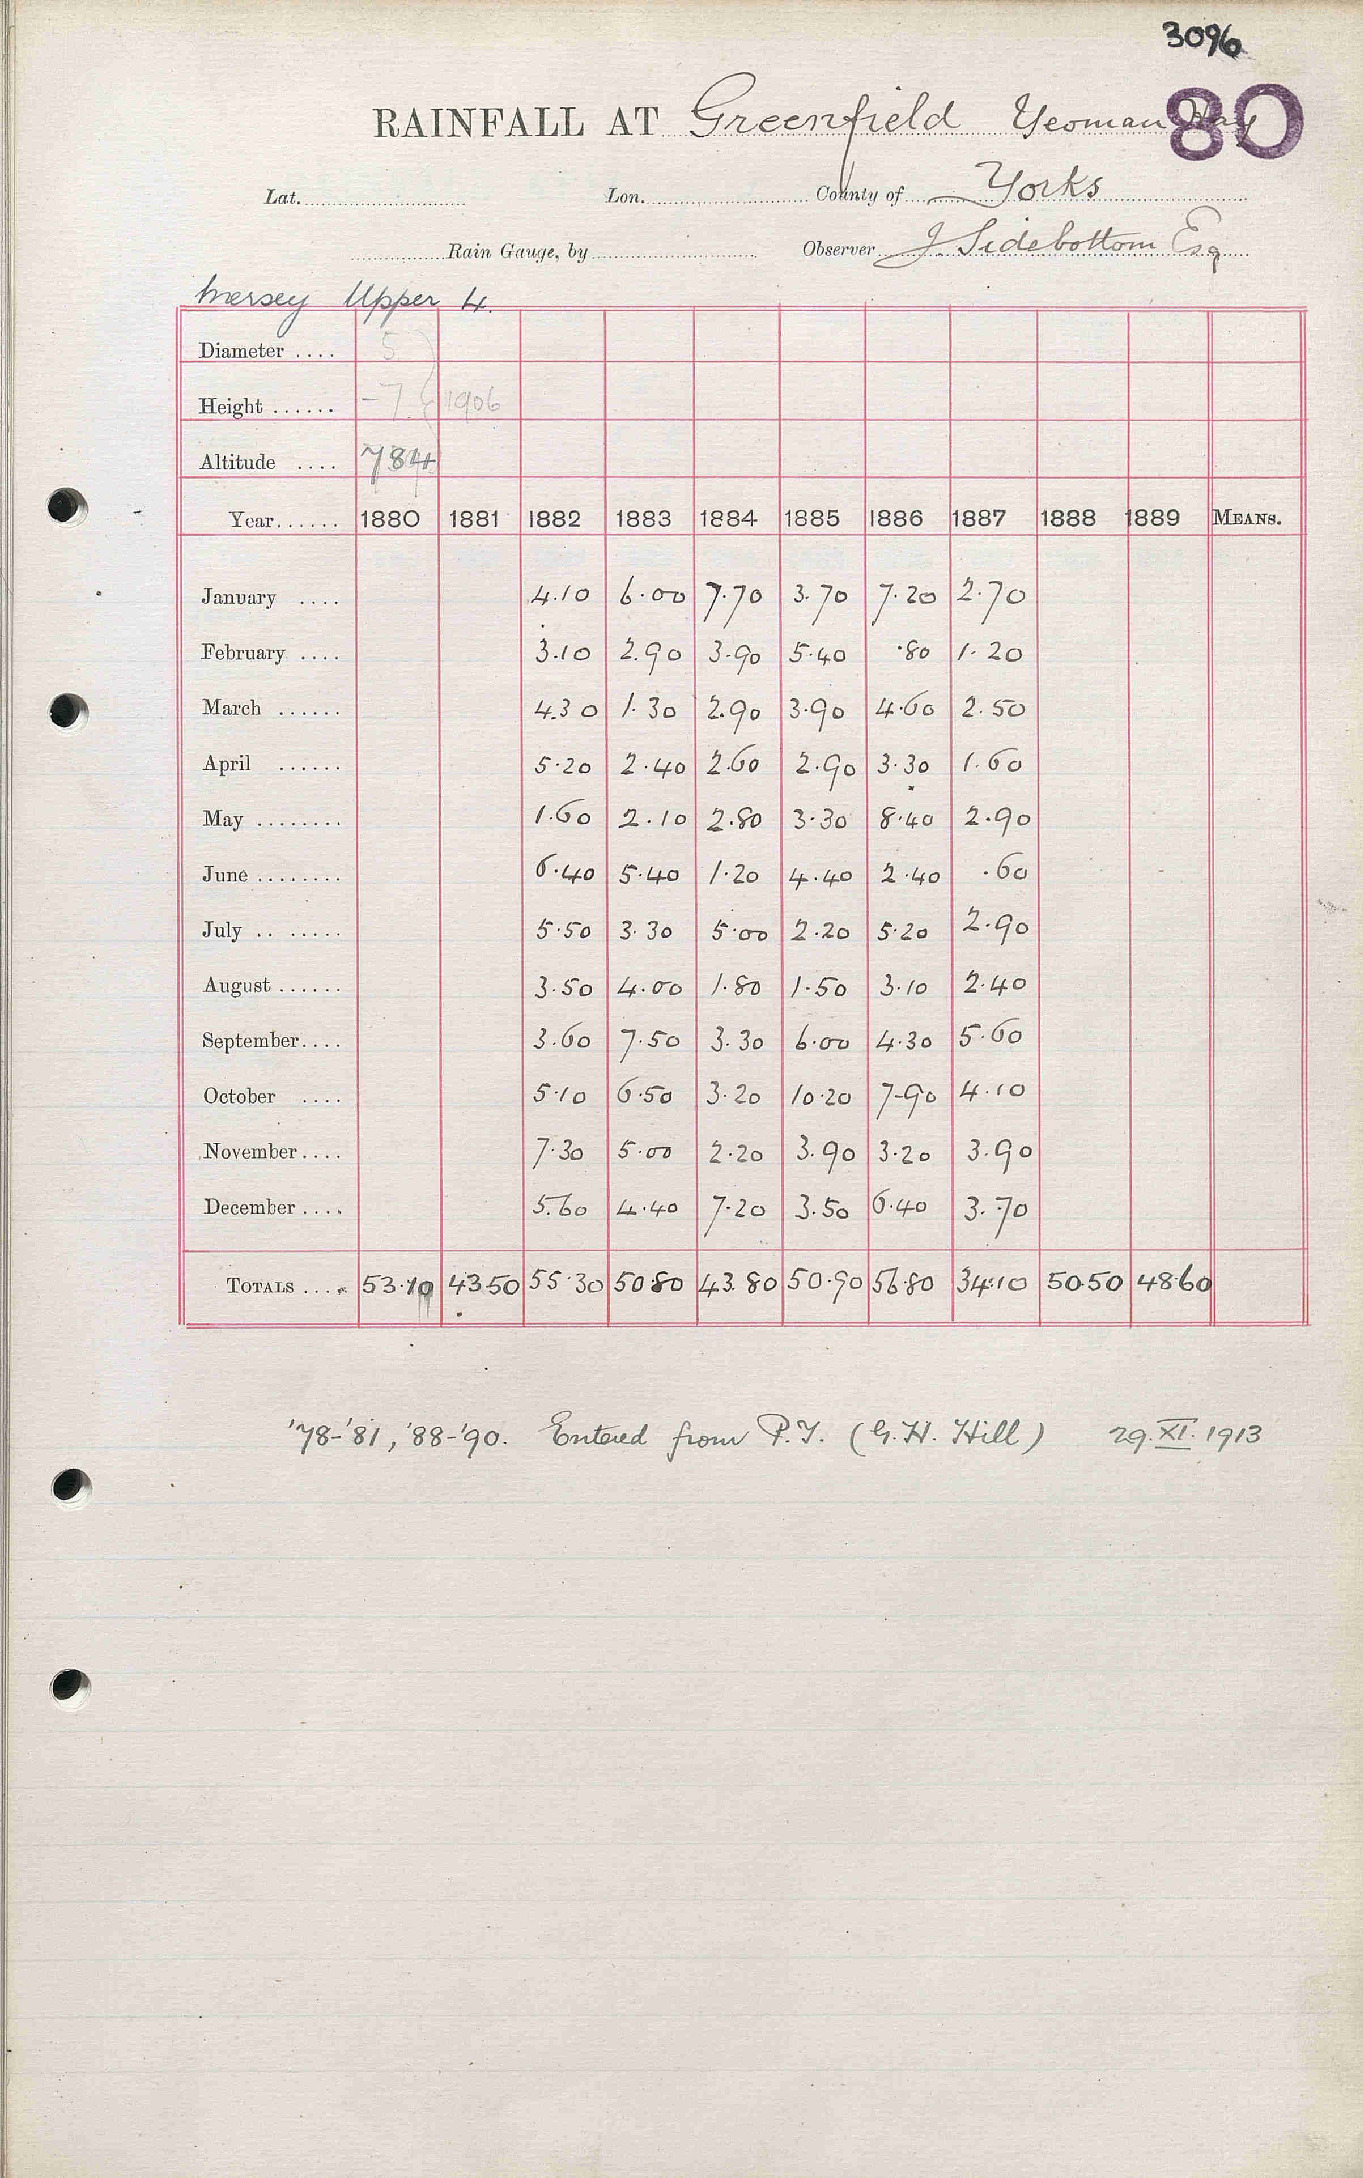 3096
80
RAINFALL AT Greenfield Yeoman Hay
Lat. Lon. County of Yorks
Rain Gauge, by Observer J. Sidebottom Esq
Mersey Upper 4.
Diameter .... 5
Height ...... -7. 1906
Altitude .... 784
Year...... 1880 1881 1882 1883 1884 1885 1886 1887 1888 1889 MEANS.
January .... 4.10 6.00 7.70 3.70 7.20 2.70
February .... 3.10 2.90 3.90 5.40 .80 1.20
March ...... 4.30 1.30 2.90 3.90 4.60 2.50
April ...... 5.20 2.40 2.60 2.90 3.30 1.60
May ........ 1.60 2.10 2.80 3.30 8.40 2.90
June ........ 6.40 5.40 1.20 4.40 2.40 .60
July .. ..... 5.50 3.30 5.00 2.20 5.20 2.90
August ...... 3.50 4.00 1.80 1.50 3.10 2.40
September.... 3.60 7.50 3.30 6.00 4.30 5.60
October .... 5.10 6.50 3.20 10.20 7.90 4.10
November .... 7.30 5.00 2.20 3.90 3.20 3.90
December .... 5.60 4.40 7.20 3.50 6.40 3.70
TOTALS .... 53.10 43.50 55.30 50.80 43.80 50.90 56.80 34.10 50.50 48.60
'78-'81, '88-'90. Entered from P.Y. (G.H. Hill) 29.XI.1913